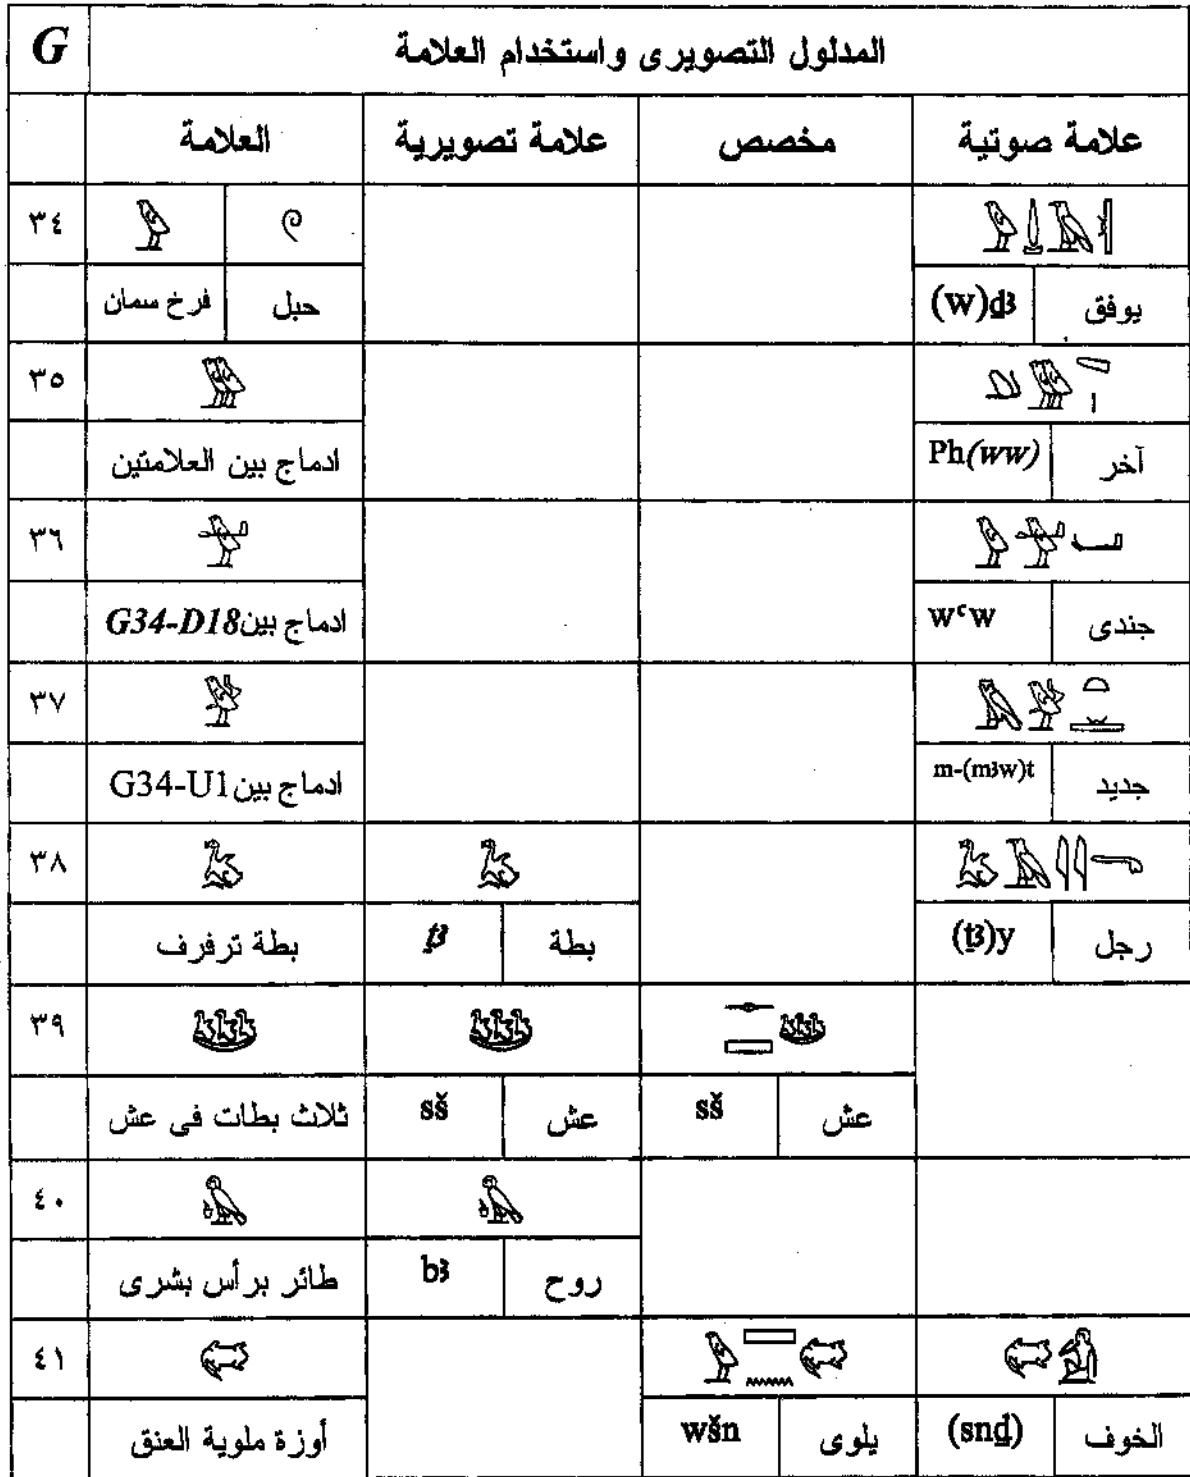 G المدلول التصويرى واستخدام العلامة
العلامة علامة تصويرية مخصص علامة صوتية
٣٤
فرخ سمان حبل (w)ḏꜣ يوفق
٣٥
ادماج بين العلامتين Ph(ww) آخر
٣٦
ادماج بين G34-D18 wꜥw جندى
٣٧
ادماج بين G34-U1 m-(mꜣw)t جديد
٣٨
بطة ترفرف ṯꜣ بطة (ṯꜣ)y رجل
٣٩
ثلاث بطات فى عش sš عش sš عش
٤٠
طائر برأس بشرى bꜣ روح
٤١
أوزة ملوية العنق wšn يلوى (snḏ) الخوف